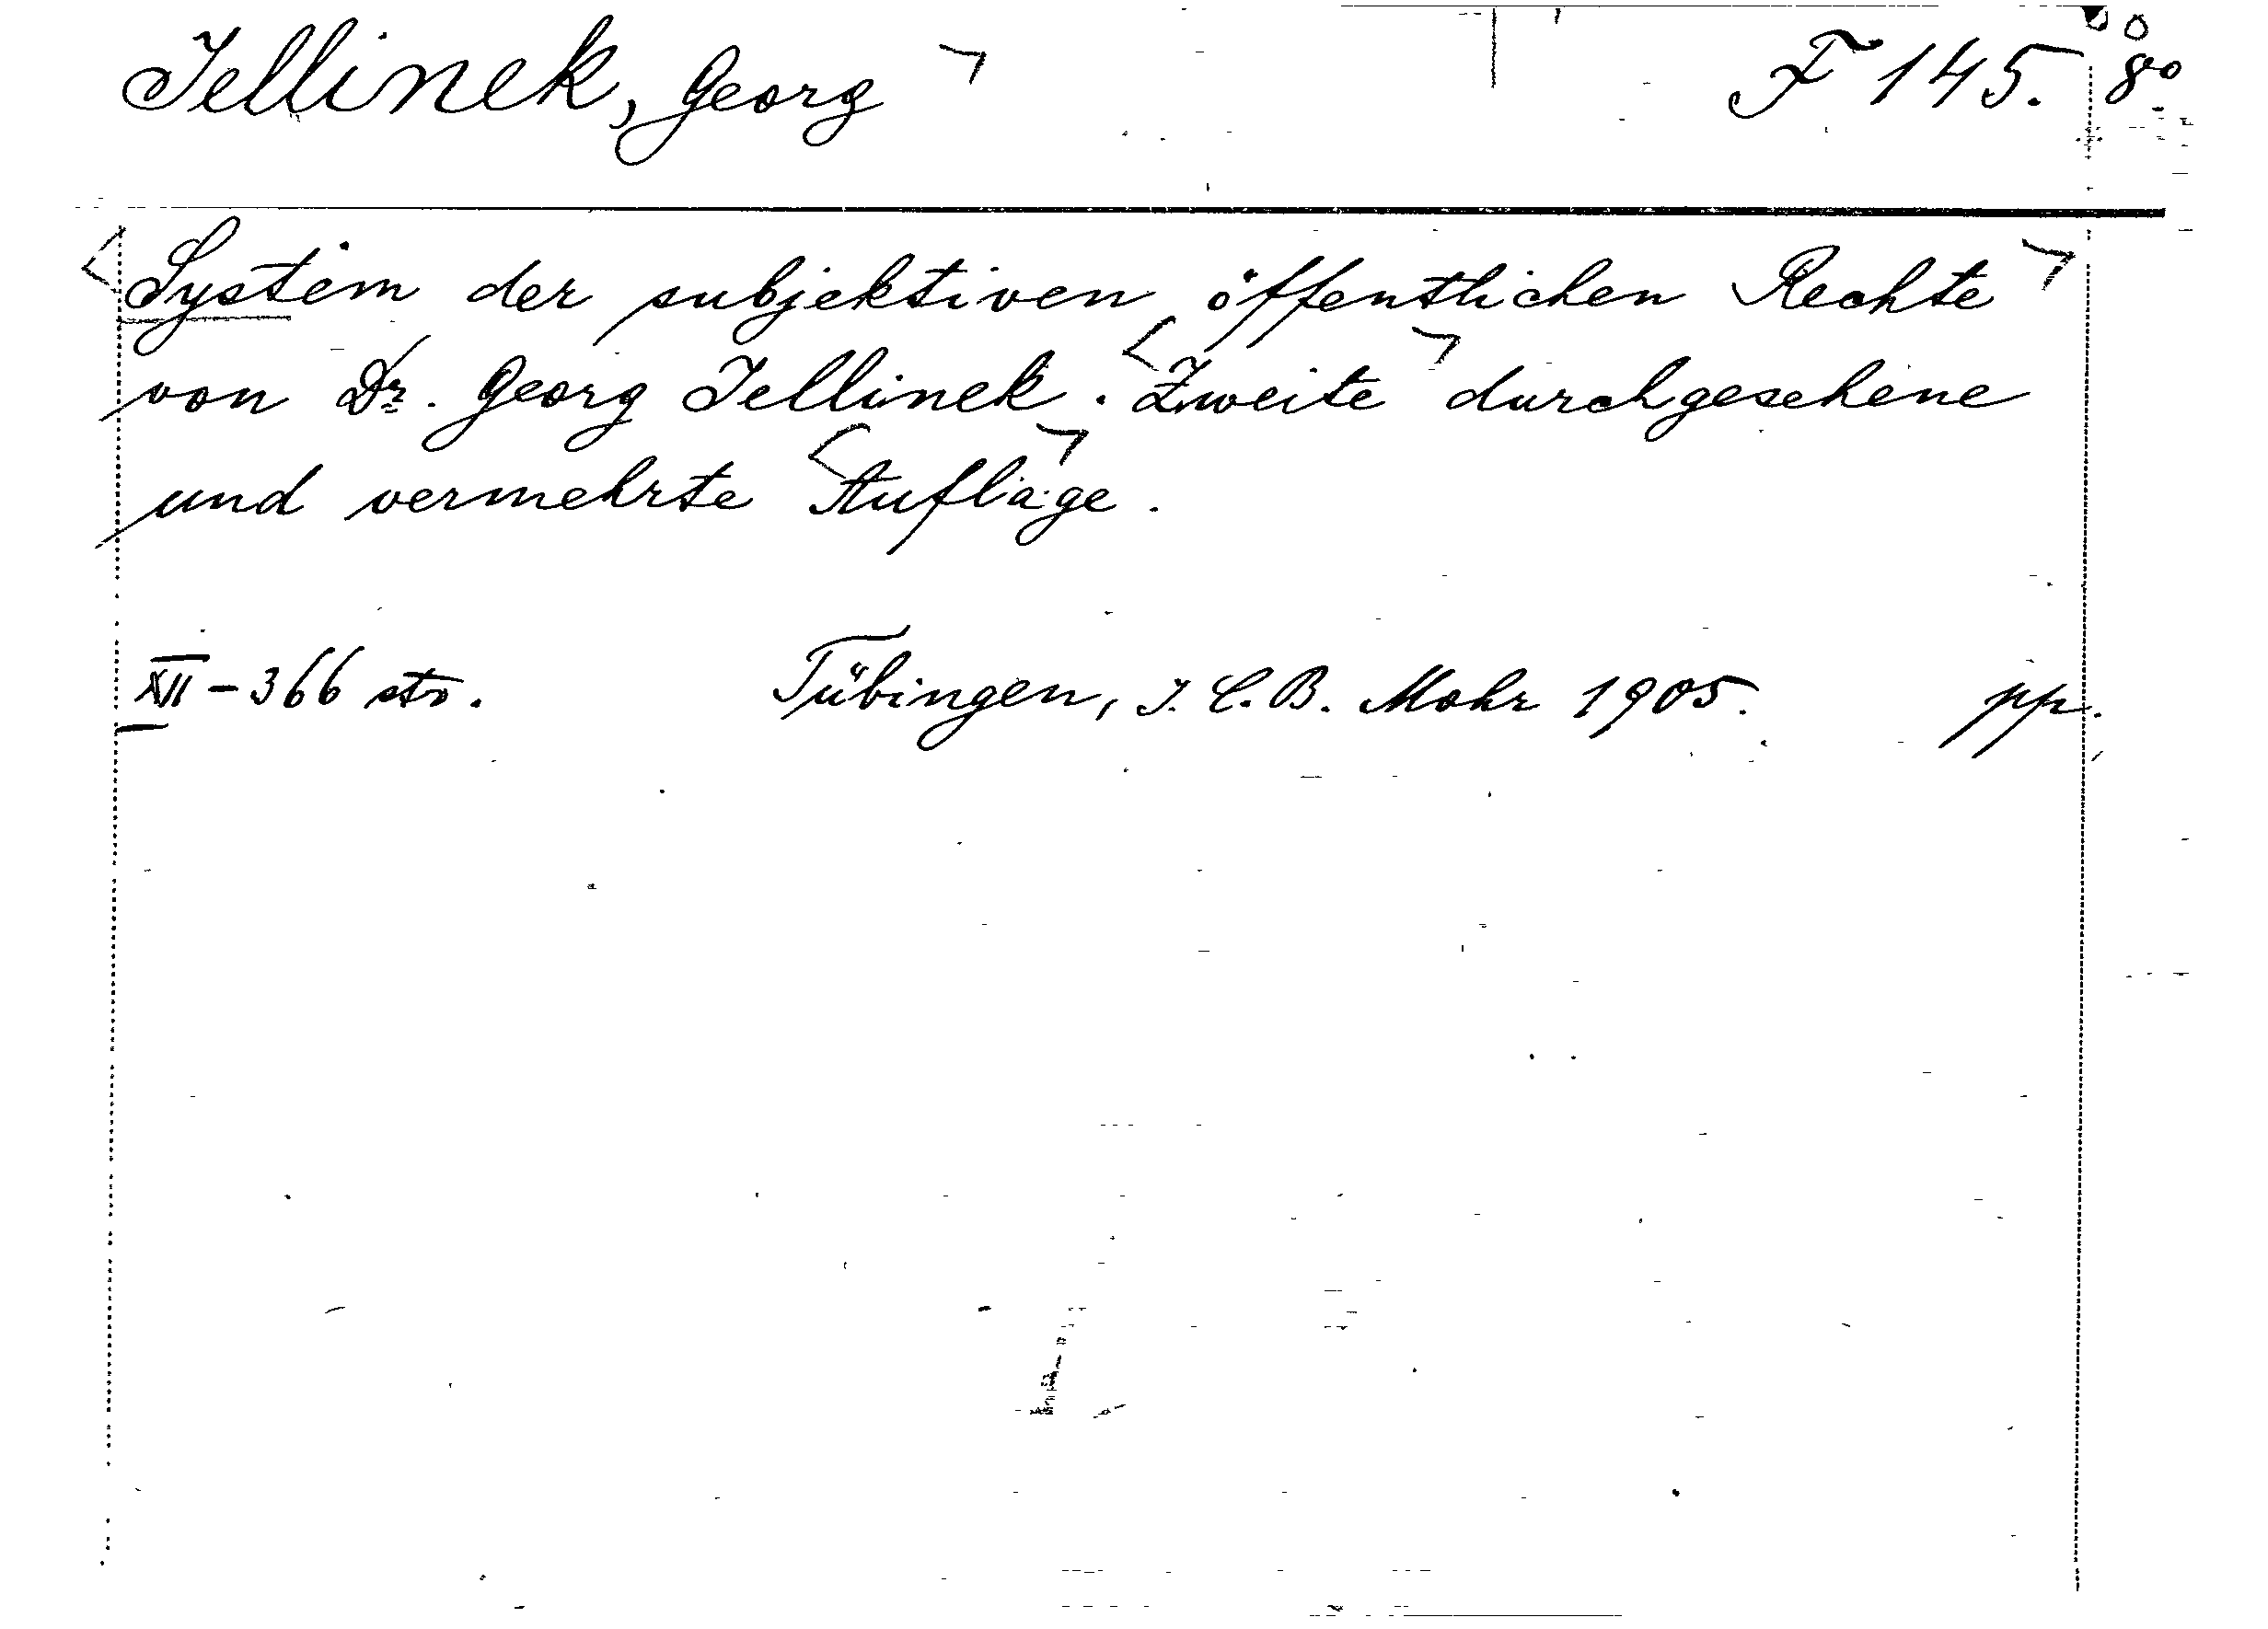 Jellinek, Georg F 145. 8º
System der subjektiven öffentlichen Rechte
von Dr. Georg Jellinek. Zweite durchgesehene
und vermehrte Auflage.
XII - 366 str. Tübingen, J. C. B. Mohr 1905. pp.